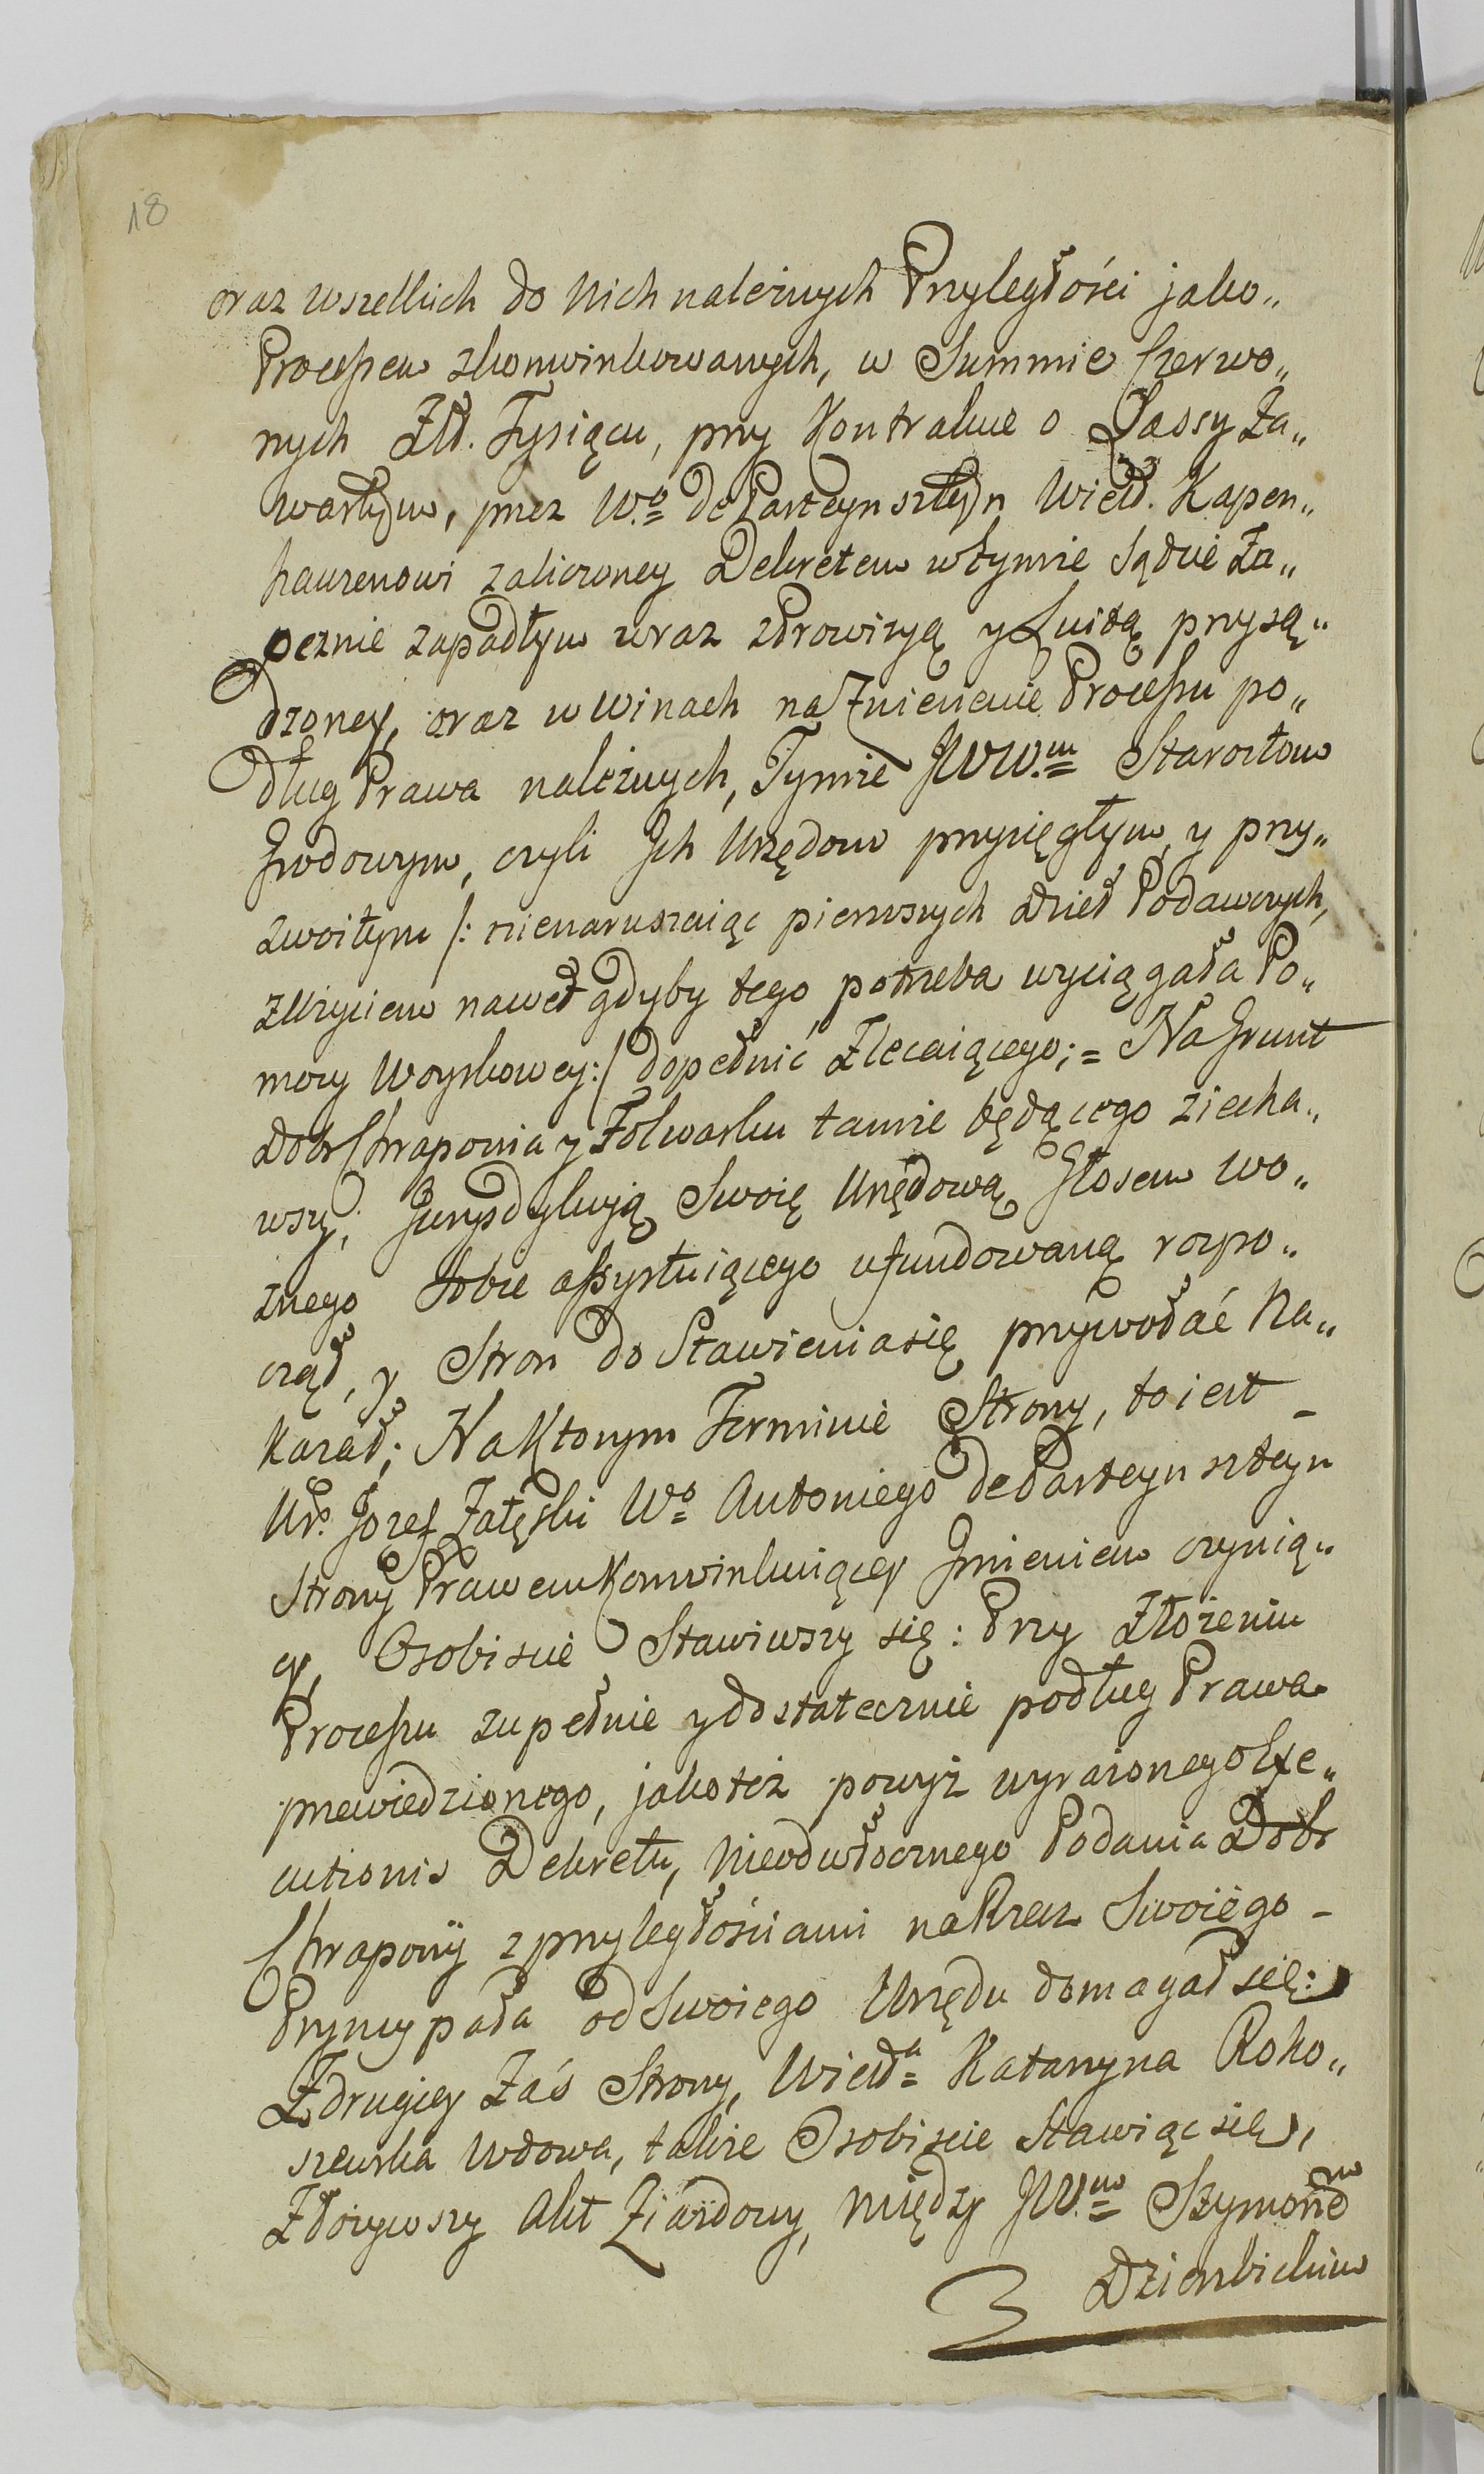 18
oraz wszelkich do Nich należnych Przyległości jako„
Processem zkonwinkowanych, w Summie Czerwo„
nych Złł. Tysiącu, przy Kontrakcie o Lassy Za„
wartym, przez W.º de Parteynszteyn Wielł. Kapen„
hauzenowi zaliczoney Dekretem wtymże Sądzie Za„
ocznie zapadłym wraz zProwizyą y Luitą przysą„
dzoney, oraz w Winach na Zniesienie Processu po„
dług Prawa należnych, Tymże JWW.m Starostom
Grodowym, czyli Jch Urzędom przysięgłym, y przy„
zwoitym /: nienaruszaiąc pierwszych Dzieł Podawczych,
zUżyciem nawet gdyby tego potrzeba wyciągała Po„
mocy Woyskowey :/ dopełnić Zlecaiącego; = Na Grunt
Dobr Chraponia y Folwarku tamże będącego ziecha„
wszy, Juryzdykcyą Swoię Urzędową Głosem Wo„
znego Sobie assystuiącego ufundowaną rozpo„
czął, y Stron do Stawienia się przywołać Na„
kazał; Na Ktorym Terminie Strony, to iest _
Ur. Jozef Załęski Wº Antoniego de Parteynszteyn
Strony Prawem Konwinkuiącey Jmieniem czynią„
cy, Osobiscie Stawiwszy się: Przy Złożeniu
Processu zupełnie y dostatecznie podług Prawa
przewiedzionego, jakoteż powyż wyrażonego Exe„
cutionis Dekretu, Nieodwłocznego Podania Dobr
Chrapony zprzyległościami na Rzecz Swoiego _
Pryncypała od Swoiego Urzędu domagał się:
Z drugiey Zaś Strony, Wielła Katarzyna Roko„
szewska Wdowa, także Osobiscie Stawiąc się,
Złożywszy Akt Ziazdowy, Między JW.m Szymonem
Dzierzbickim